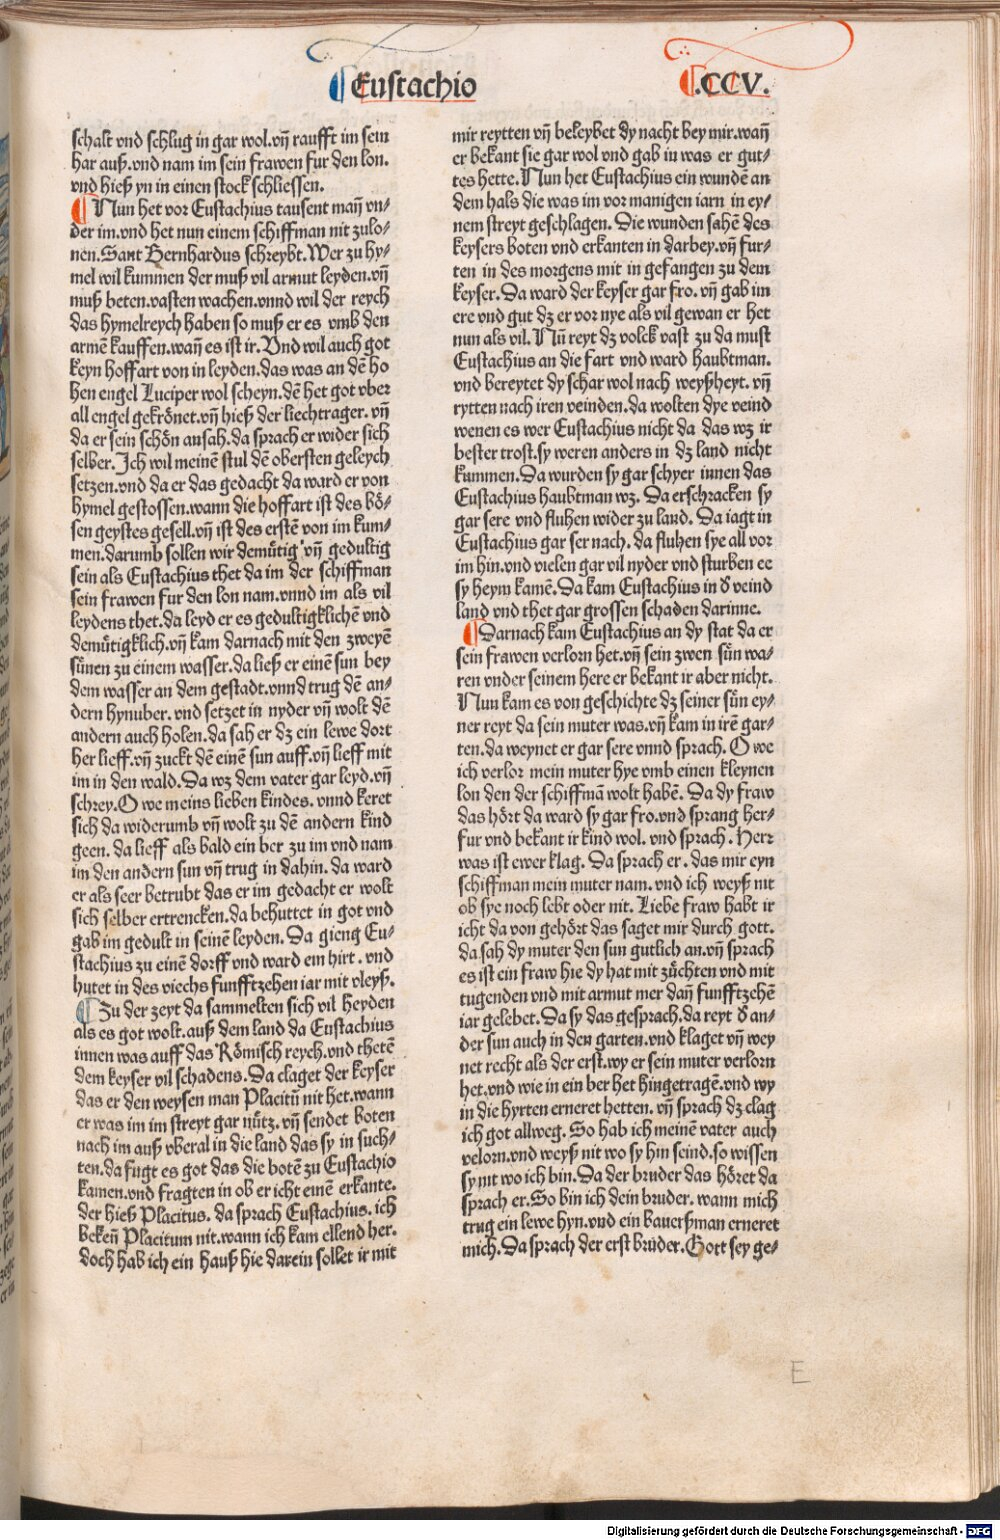 Eustachio
.CCV.
schalt vnd schlug in gar wol.vñ raufft im sein
har auß.vnd nam im sein frawen fur den lon.
vnd hieß yn in einen stock schliessen.
Nun het vor Eustachius tausent mañ vn⸗
der im.vnd het nun einem schiffman nit zulo⸗
nen.Sant Bernhardus schreybt.Wer zu hy⸗
mel wil kummen der muß vil armut leyden.vñ
muß beten.vasten wachen.vnnd wil der reych
das hymelreych haben so muß er es vmb den
armē kauffen.wañ es ist ir.Vnd wil auch got
keyn hoffart von in leyden.das was an dē ho
hen engel Luciper wol scheyn.dē het got vber
all engel gekrönet.vñ hieß der liechtrager.vñ
da er sein schön ansah.da sprach er wider sich
selber.Ich wil meinē stul dē obersten geleych
setzen.vnd da er das gedacht da ward er von
hymel gestossen.wann die hoffart ist des bö⸗
sen geystes gesell.vñ ist des erstē von im kum⸗
men.darumb sollen wir demütig vñ gedultig
sein als Eustachius thet da im der schiffman
sein frawen fur den lon nam.vnnd im als vil
leydens thet.da leyd er es gedultigklichē vnd
demütigklich.vñ kam darnach mit den zweyē
sünen zu einem wasser.da ließ er einē sun bey
dem wasser an dem gestadt.vnnd trug dē an⸗
dern hynuber.vnd setzet in nyder vñ wolt dē
andern auch holen.da sah er dz ein lewe dort
her lieff.vñ zuckt dē einē sun auff.vñ lieff mit
im in den wald.Da wz dem vater gar leyd.vñ
schrey.O we meins lieben kindes.vnnd keret
sich da widerumb vñ wolt zu dē andern kind
geen.da lieff als bald ein ber zu im vnd nam
im den andern sun vñ trug in dahin.da ward
er als seer betrubt das er im gedacht er wolt
sich selber ertrencken.da behuttet in got vnd
gab im gedult in seinē leyden.Da gieng Eu⸗
stachius zu einē dorff vnd ward ein hirt.vnd
hutet in des viechs funfftzehen iar mit vleyß.
Zu der zeyt da sammelten sich vil heyden
als es got wolt.auß dem land da Eustachius
innen was auff das Römisch reych.vnd thetē
dem keyser vil schadens.Da claget der keyser
das er den weysen man Placitū nit het.wann
er was im im streyt gar nütz.vñ sendet boten
nach im auß vberal in die land das sy in such⸗
ten.da fugt es got das die botē zu Eustachio
kamen.vnd fragten in ob er icht einē erkante.
der hieß Placitus.da sprach Eustachius.ich
bekeñ Placitum nit.wann ich kam ellend her.
doch hab ich ein hauß hie darein sollet ir mit
mir reytten vñ beleybet dy nacht bey mir.wañ
er bekant sie gar wol vnd gab in was er gut⸗
tes hette.Nun het Eustachius ein wundē an
dem hals die was im vor manigen iarn in ey⸗
nem streyt geschlagen.Die wunden sahē des
keysers boten vnd erkanten in darbey.vñ fur⸗
ten in des morgens mit in gefangen zu dem
keyser.Da ward der keyser gar fro.vñ gab im
ere vnd gut dz er vor nye als vil gewan er het
nun als vil.Nū reyt dz volck vast zu da must
Eustachius an die fart vnd ward haubtman.
vnd bereytet dy schar wol nach weyßheyt.vñ
rytten nach iren veinden.da wolten dye veind
wenen es wer Eustachius nicht da das wz ir
bester trost.sy weren anders in dz land nicht
kummen.Da wurden sy gar schyer innen das
Eustachius haubtman wz.Da erschracken sy
gar sere vnd fluhen wider zu land.Da iagt in
Eustachius gar ser nach.da fluhen sye all vor
im hin.vnd vielen gar vil nyder vnd sturben ee
sy heym kamē.Da kam Eustachius in ð veind
land vnd thet gar grossen schaden darinne.
Darnach kam Eustachius an dy stat da er
sein frawen verlorn het.vñ sein zwen sün wa⸗
ren vnder seinem here er bekant ir aber nicht.
Nun kam es von geschichte dz seiner sün ey⸗
ner reyt da sein muter was.vñ kam in irē gar⸗
ten.da weynet er gar sere vnnd sprach.O we
ich verlor mein muter hye vmb einen kleynen
lon den der schiffmā wolt habē.Da dy fraw
das hört da ward sy gar fro.vnd sprang her⸗
fur vnd bekant ir kind wol.vnd sprach.Herr
was ist ewer klag.Da sprach er.das mir eyn
schiffman mein muter nam.vnd ich weyß nit
ob sye noch lebt oder nit.Liebe fraw habt ir
icht da von gehört das saget mir durch gott.
da sah dy muter den sun gutlich an.vñ sprach
es ist ein fraw hie dy hat mit züchten vnd mit
tugenden vnd mit armut mer dañ funfftzehē
iar gelebet.Da sy das gesprach.da reyt ð an⸗
der sun auch in den garten.vnd klaget vñ wey
net recht als der erst.wy er sein muter verlorn
het.vnd wie in ein ber het hingetragē.vnd wy
in die hyrten erneret hetten.vñ sprach dz clag
ich got allweg.So hab ich meinē vater auch
velorn.vnd weyß nit wo sy hin seind.so wissen
sy nit wo ich bin.Da der bruder das höret da
sprach er.So bin ich dein bruder.wann mich
trug ein lewe hyn.vnd ein bauerßman erneret
mich.Da sprach der erst bruder.Gott sey ge⸗
E
Digitalisierung gefördert durch die Deutsche Forschungsgemeinschaft - DFG